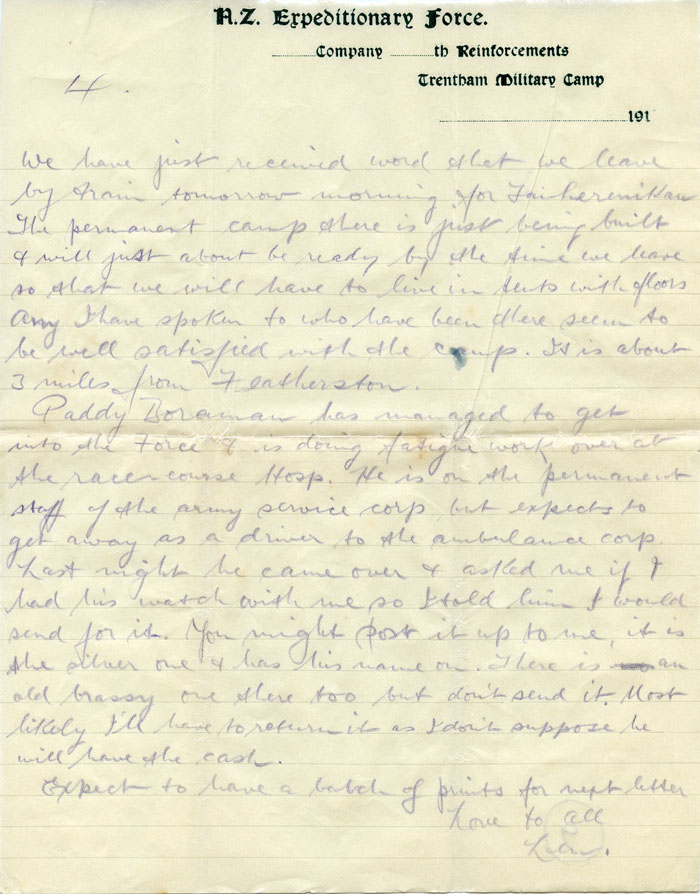 N.Z. Expeditionary Force.
Company th Reinforcements
Trentham Military Camp
191
4.
We have just received word that we leave
by train tomorrow morning for Taiherenikau
The permanent camp there is just being built
& will just about be ready by the time we leave
so that we will have to live in tents with floors
Any I have spoken to who have been there seem to
be well satisfied with the camp. It is about
3 miles from Featherston.
Paddy Boraman has managed to get
into the Force & is doing fatigue work over at
the race-course Hosp. He is on the permanent
staff of the army service corp but expects to
get away as a driver to the ambulance corp.
Last night he came over & asked me if I
had his watch with me so I told him I would
send for it. You might post it up to me, it is
the silver one & has his name on. There is an
old brassy one there too but don't send it. Most
likely I'll have to return it as I don't suppose he
will have the cash.
Expect to have a batch of prints for next letter
Love to all